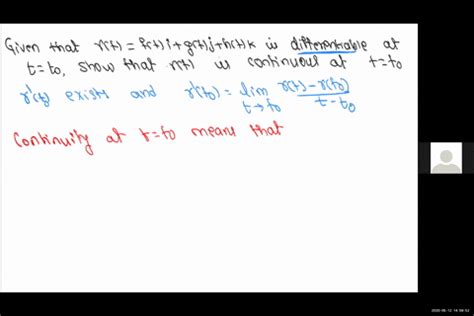 Given that r(t) = f(t)i + g(t)j + h(t)k is differentiable at
t = t₀, show that r(t) is continuous at t = t₀
r'(t₀) exists and r'(t₀) = lim t→t₀ r(t) - r(t₀) / t - t₀
Continuity at t = t₀ means that